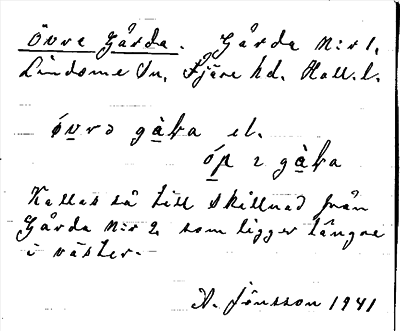 Övre Gårda. Gårda N:r 1,
Lindome Sn, Fjäre hd. Hall. l.
óvrə gàka el.
óp 2 gàka
Kallas så till skillnad från
Gårda N:r 2 som ligger längre
i väster.
A. Jönsson 1941